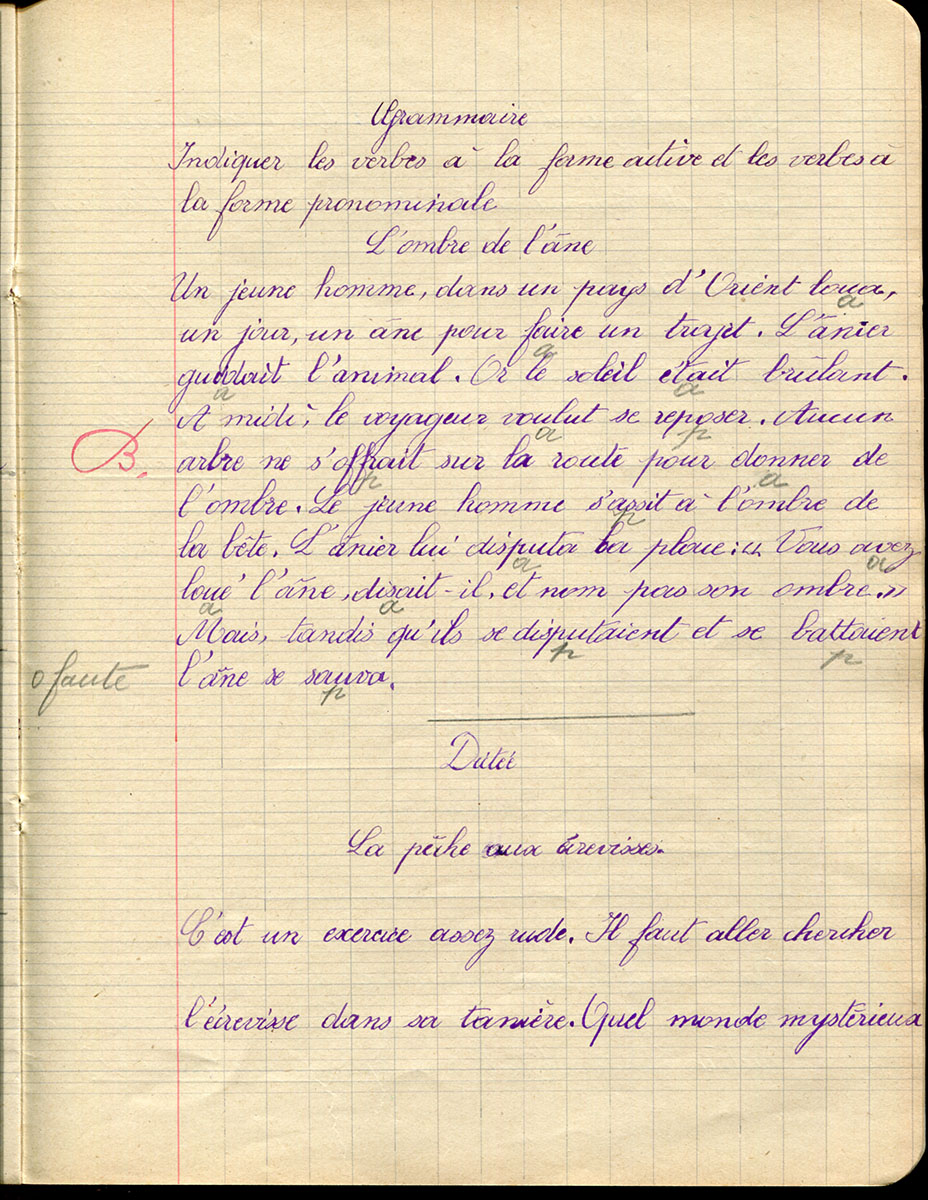 Grammaire
Indiquer les verbes à la forme active et les verbes à
la forme pronominale
L'ombre de l'âne
Un jeune homme, dans un pays d'Orient loua,
a
un jour, un âne pour faire un trajet. L'ânier
a
guidait l'animal. Or le soleil était brûlant.
a a
A midi, le voyageur voulut se reposer. Aucun
a p
B.
arbre ne s'offrait sur la route pour donner de
p a
l'ombre. Le jeune homme s'assit à l'ombre de
p
la bête. L'ânier lui disputa la place : « Vous avez
a a
loué l'âne, disait-il, et nom pas son ombre. »
a a
Mais, tandis qu'ils se disputaient et se battaient
p p
0 faute
l'âne se sauva.
p
Dictée
La pêche aux écrevisses.
C'est un exercice assez rude. Il faut aller chercher
l'écrevisse dans sa tanière. Quel monde mystérieux